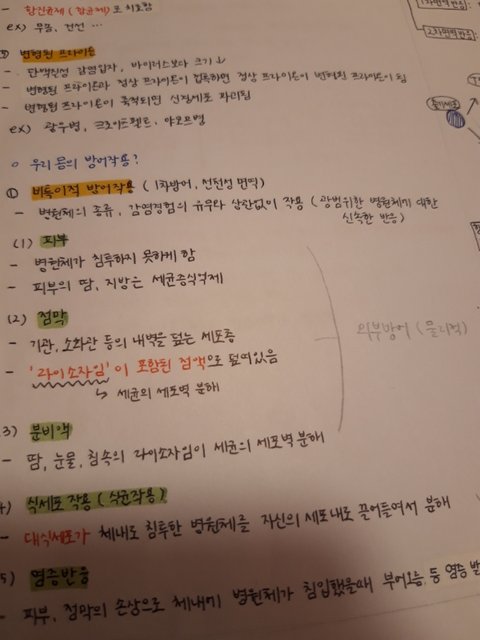 - 항진균제 (항균제)로 치료함
ex) 무좀, 건선 …
③ 변형된 프라이온
- 단백질성 감염입자, 바이러스보다 크기↓
- 변형된 프라이온과 정상 프라이온이 접촉하면 정상 프라이온이 변형된 프라이온이 됨
- 변형된 프라이온이 축적되면 신경세포 파괴됨
ex) 광우병, 크로이츠펠트, 야코프병
○ 우리 몸의 방어작용?
① 비특이적 방어작용 (1차방어, 선천성 면역)
- 병원체의 종류, 감염경험의 유무와 상관없이 작용 (광범위한 병원체에 대한
신속한 반응)
(1) 피부
- 병원체가 침투하지 못하게 함
- 피부의 땀, 지방은 세균증식억제
(2) 점막
- 기관, 소화관 등의 내벽을 덮는 세포층
- '라이소자임'이 포함된 점액으로 덮여있음
↳ 세균의 세포벽 분해
외부방어 (물리적)
3) 분비액
- 땀, 눈물, 침속의 라이소자임이 세균의 세포벽 분해
4) 식세포작용 (식균작용)
- 대식세포가 체내로 침투한 병원체를 자신의 세포내로 끌어들여서 분해
5) 염증반응
- 피부, 점막의 손상으로 체내에 병원체가 침입했을때 부어오름, 등 염증
1차면역반응:
2차면역반응: